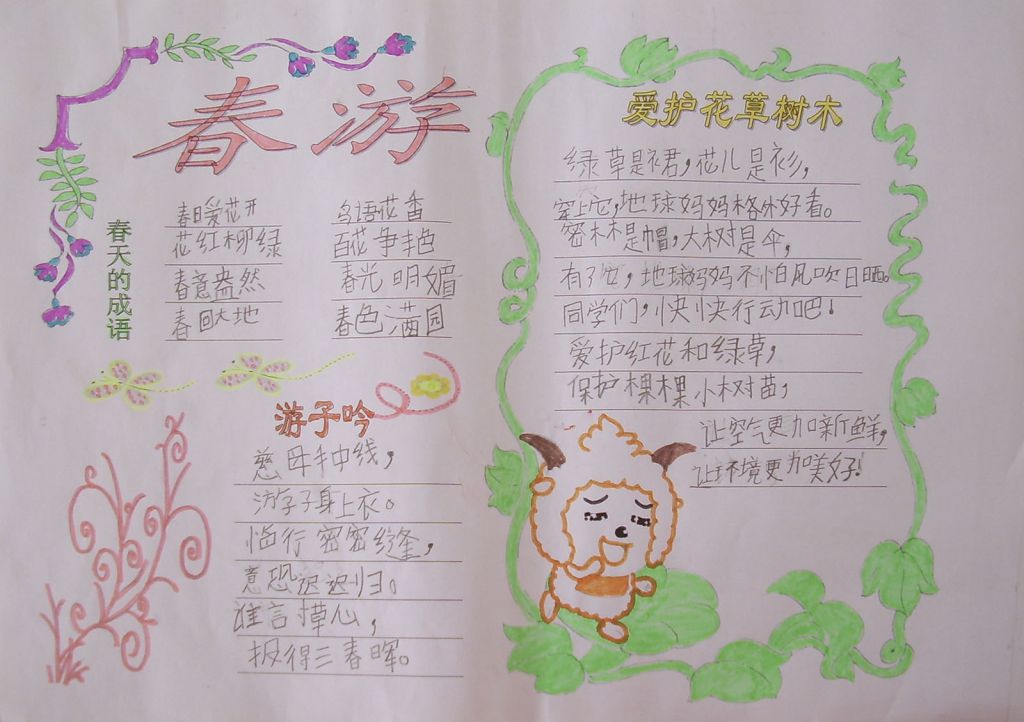 春游
春天的成语
春日爱花开
花红柳绿
春意盎然
春回大地
鸟语花香
百花争丰色
春光明媚
春色满园
游子吟
慈母手中线，
游子身上衣。
临行密密缝，
意恐迟迟归。
谁言草心，
报得三春晖。
爱护花草树木
绿草是裙，花儿是衫，
穿上它，地球妈妈格外好看。
密林是帽，大树是伞，
有了它，地球妈妈不怕风吹日晒。
同学们，快快行动吧！
爱护红花和绿草，
保护棵棵小树苗，
让空气更加新鲜，
让环境更加美好！